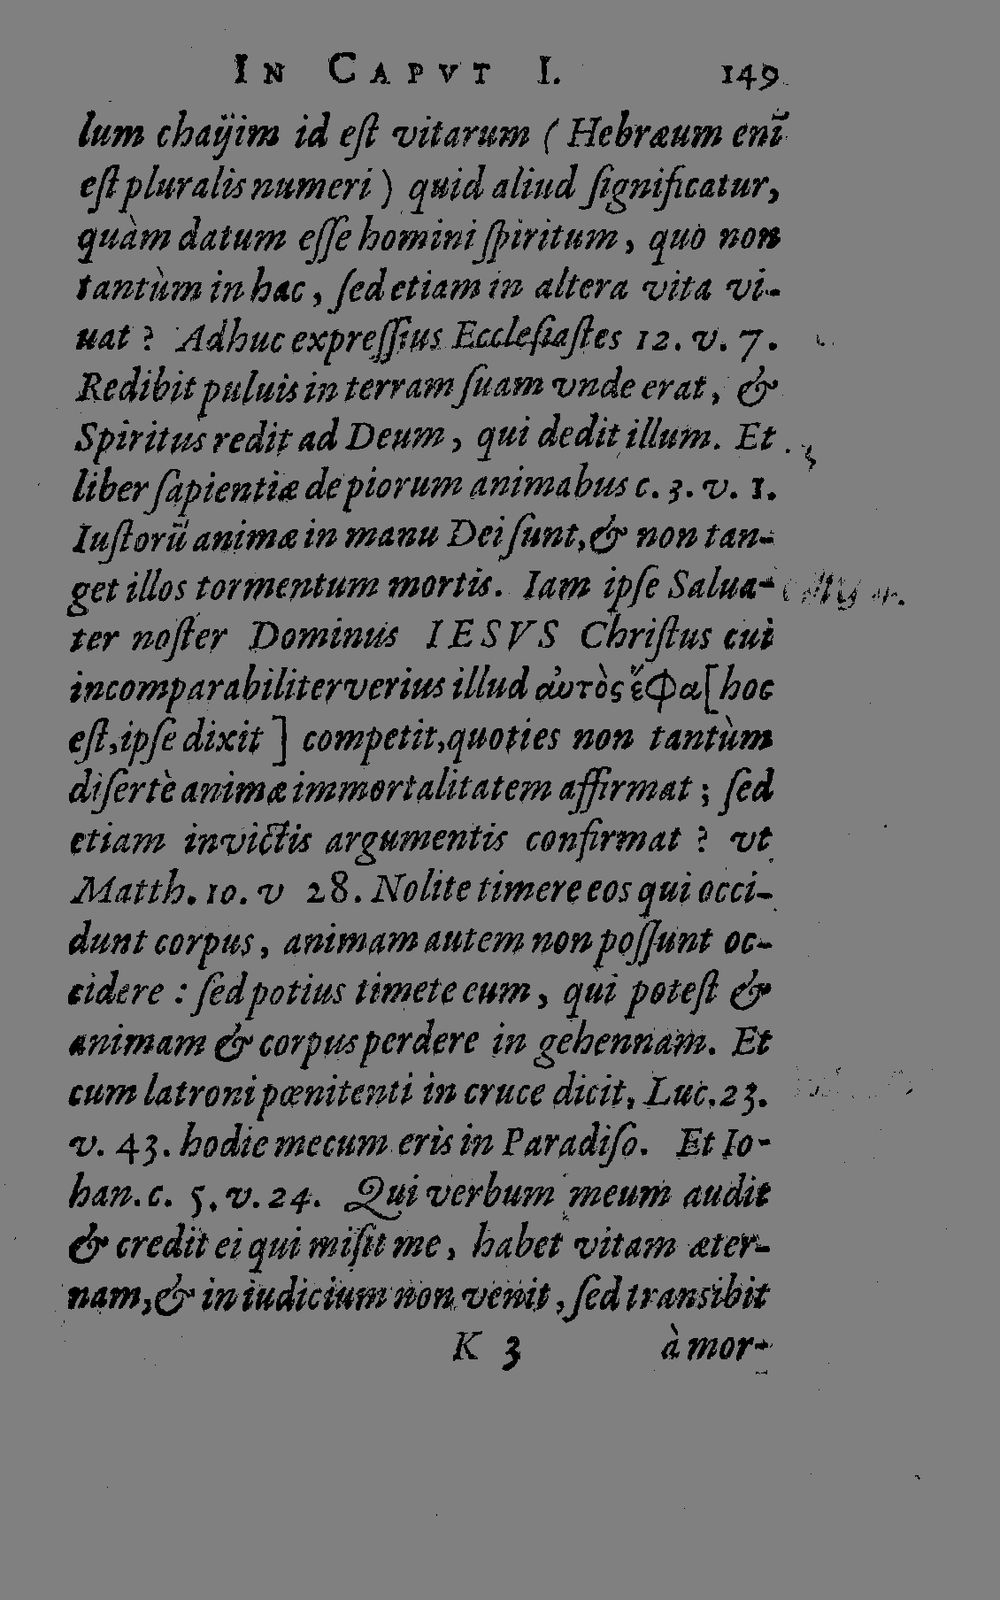 IN CAPVT I. 149
lum chaÿim id eſt vitarum ( Hebræum enĩ
eſt pluralis numeri ) quid aliud ſignificatur,
quàm datum eſſe homini ſpiritum, quo non
tantùm in hac, ſed etiam in altera vita vi-
uat ? Adhuc expreſſius Eccleſiaſtes 12. v. 7.
Redibit puluis in terram ſuam vnde erat, &
Spiritus redit ad Deum, qui dedit illum. Et
liber ſapientiæ de piorum animabus c. 3. v. 1.
Iuſtorũ animæ in manu Dei ſunt, & non tan-
get illos tormentum mortis. Iam ipſe Salua-
ter noſter Dominus IESVS Chriſtus cui
incomparabiliter verius illud αὐτὸς ἔφα [hoc
eſt, ipſe dixit ] competit, quoties non tantùm
diſertè animæ immortalitatem affirmat ; ſed
etiam invictis argumentis confirmat ? vt
Matth. 10. v 28. Nolite timere eos qui occi-
dunt corpus, animam autem non poſſunt oc-
cidere : ſed potius timete eum, qui poteſt &
animam & corpus perdere in gehennam. Et
cum latroni pœnitenti in cruce dicit, Luc. 23.
v. 43. hodie mecum eris in Paradiſo. Et Io-
han. c. 5. v. 24. Qui verbum meum audit
& credit ei qui miſit me, habet vitam æter-
nam, & in iudicium non venit, ſed transibit
K 3 à mor-